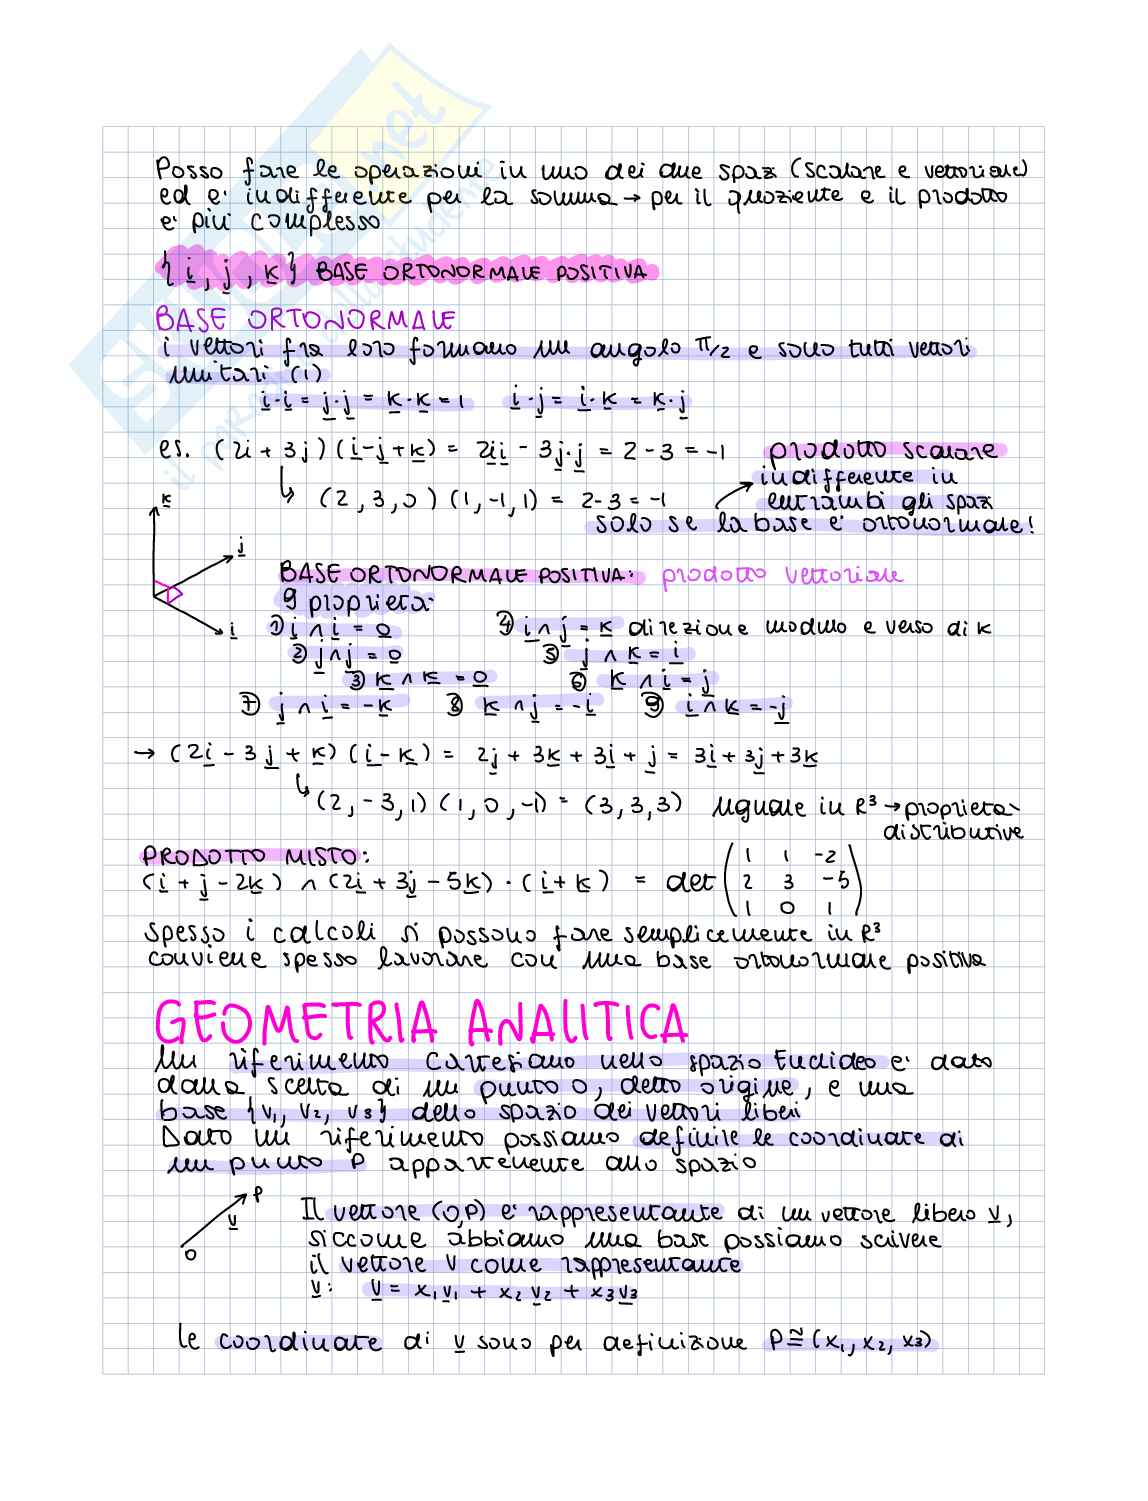 Posso fare le operazioni in uno dei due spaz (scalare e vettoriale)
ed e' indifferente per la somma → per il quoziente e il prodotto
e' più complesso
{i, j, k} BASE ORTONORMALE POSITIVA
BASE ORTONORMALE
i vettori fra loro formano un angolo π/2 e sono tutti vettori
unitari (1)
i·i = j·j = k·k = 1 i·j = i·k = k·j
es. (2i + 3j)(i-j+k) = 2ii - 3j·j = 2 - 3 = -1 prodotto scalare
indifferente in
(2, 3, 0)(1, -1, 1) = 2-3 = -1 entrambi gli spaz
solo se la base e' ortonormale!
k
j
i
BASE ORTONORMALE POSITIVA: prodotto vettoriale
9 proprieta'
① i ∧ i = 0 ④ i ∧ j = k direzione modulo e verso di k
② j ∧ j = 0 ⑤ j ∧ k = i
③ k ∧ k = 0 ⑥ k ∧ i = j
⑦ j ∧ i = -k ⑧ k ∧ j = -i ⑨ i ∧ k = -j
→ (2i - 3j + k)(i-k) = 2j + 3k + 3i + j = 3i + 3j + 3k
(2, -3, 1)(1, 0, -1) = (3, 3, 3) uguale in R³ → proprieta'
distributive
PRODOTTO MISTO:
(i + j - 2k) ∧ (2i + 3j - 5k) · (i + k) = det
1 1 -2
2 3 -5
1 0 1
spesso i calcoli si possono fare semplicemente in R³
conviene spesso lavorare con una base ortonormale positiva
GEOMETRIA ANALITICA
Un riferimento cartesiano nello spazio Euclideo e' dato
dalla scelta di un punto O, detto origine, e una
base {v₁, v₂, v₃} dello spazio dei vettori liberi
Dato un riferimento possiamo definire le coordinate di
un punto P appartenente allo spazio
P
v
O
Il vettore (O,P) e' rappresentante di un vettore libero v,
siccome abbiamo una base possiamo scrivere
il vettore v come rappresentante
v: v = x₁v₁ + x₂v₂ + x₃v₃
le coordinate di v sono per definizione P ≅ (x₁, x₂, x₃)